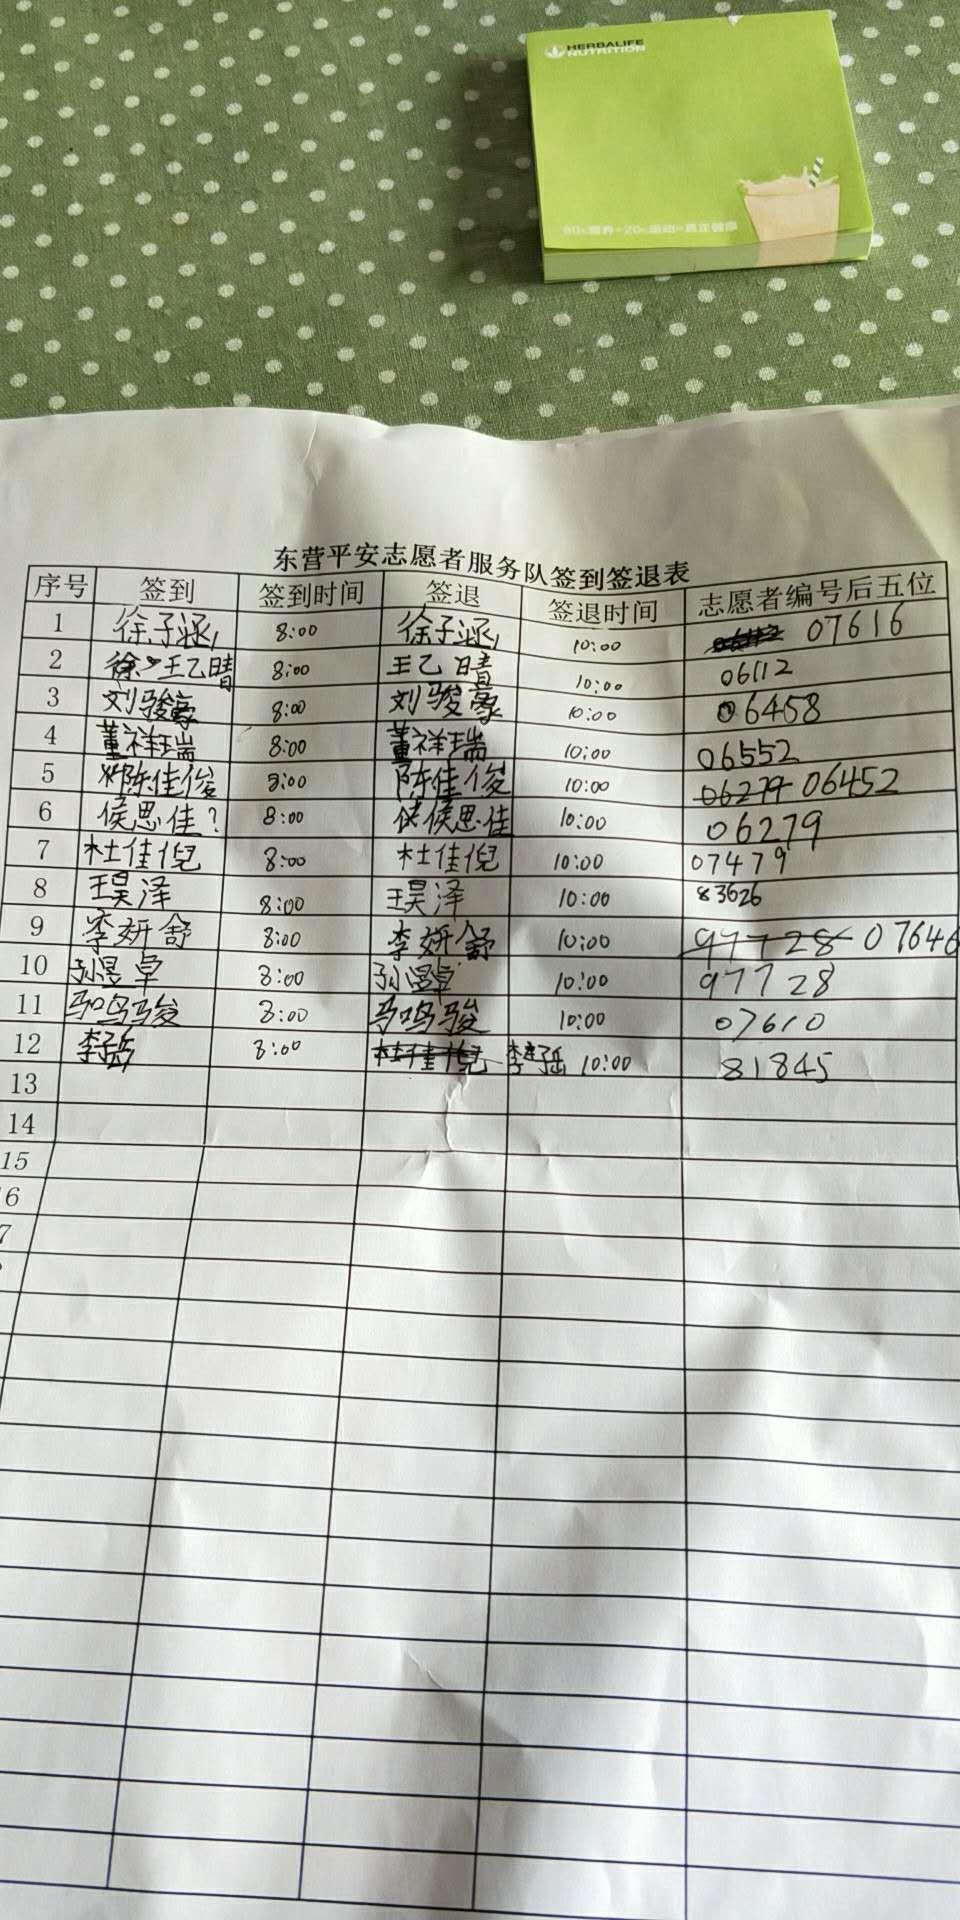 HERBALIFE
NUTRITION
80%营养+20%运动=真正健康
东营平安志愿者服务队签到签退表
序号 签到 签到时间 签退 签退时间 志愿者编号后五位
1 徐子涵 8:00 徐子涵 10:00 06112 07616
2 徐 王乙晴 8:00 王乙晴 10:00 06112
3 刘骏豪 8:00 刘骏豪 10:00 06458
4 董祥瑞 8:00 董祥瑞 10:00 06552
5 陈佳俊 8:00 陈佳俊 10:00 06279 06452
6 侯思佳? 8:00 侯思佳 10:00 06279
7 杜佳倪 8:00 杜佳倪 10:00 07479
8 王昊泽 8:00 王昊泽 10:00 83626
9 李妍舒 8:00 李妍舒 10:00 97728 07646
10 孙昱卓 8:00 孙昱卓 10:00 97728
11 马鸣骏 8:00 马鸣骏 10:00 07610
12 李子岳 8:00 杜佳倪 李子岳 10:00 81845
13
14
15
6
7